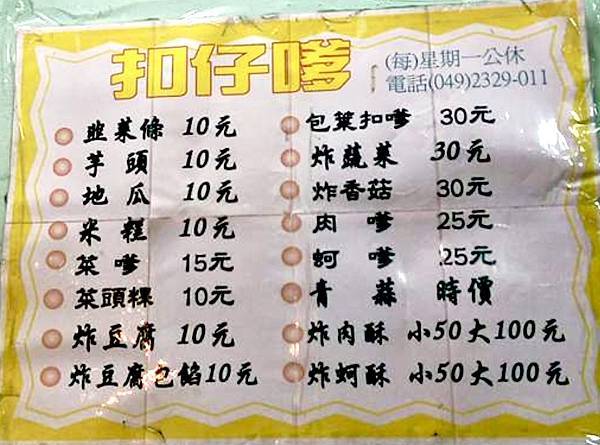 扣仔嗲
(每)星期一公休
電話(049)2329-011
韭菜條 10元
芋頭 10元
地瓜 10元
米糕 10元
菜嗲 15元
菜頭粿 10元
炸豆腐 10元
炸豆腐包餡10元
包葉扣嗲 30元
炸蔬菜 30元
炸香菇 30元
肉嗲 25元
蚵嗲 25元
青蒜 時價
炸肉酥 小50大100元
炸蚵酥 小50大100元